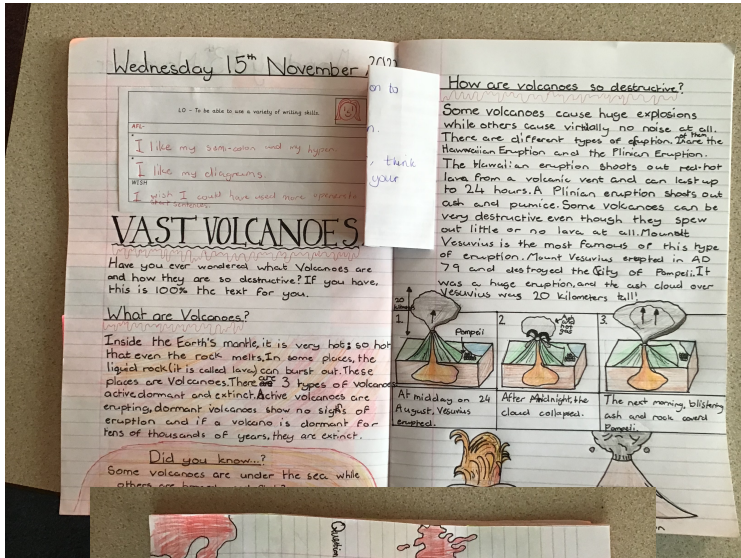 Wednesday 15th November
LO - To be able to use a variety of writing skills.
AFL-
I like my semi-colon and my hypen
I like my diagrams.
WISH
I wish I could have used more openers to
start sentences.
on to
n.
, think
your
VAST VOLCANOES
Have you ever wondered what Volcanoes are
and how they are so destructive? If you have,
this is 100% the text for you.
What are Volcanoes?
Inside the Earth's mantle, it is very hot; so hot
that even the rock melts. In some places, the
liquid rock (it is called lava) can burst out. These
places are Volcanoes. There are 3 types of volcanoes
active, dormant and extinct. Active volcanoes are
erupting, dormant volcanoes show no signs of
eruption and if a volcano is dormant for
tens of thousands of years, they are extinct.
Did you know...?
Some volcanoes are under the sea while
How are volcanoes so destructive?
Some volcanoes cause huge explosions
while others cause virtually no noise at all.
There are different types of eruption. of them are the
Hawwaiian Eruption and the Plinian Eruption.
The Hawaiian eruption shoots out red-hot
lava from a volcanic vent and can last up
to 24 hours. A Plinian eruption shoots out
ash and pumice. Some volcanoes can be
very destructive even though they spew
out little or no lava at all. Mount
Vesuvius is the most famous of this type
of eruption. Mount Vesuvius erupted in AD
79 and destroyed the City of Pompeii. It
was a huge eruption, and the ash cloud over
Vesuvius was 20 kilometers tall!
20
1.
Pompeii
2.
3.
At midday on 24
August, Vesuvius
erupted.
After Midnight, the
cloud collapsed.
The next morning, blistering
ash and rock coverd
Pompeii.
Question